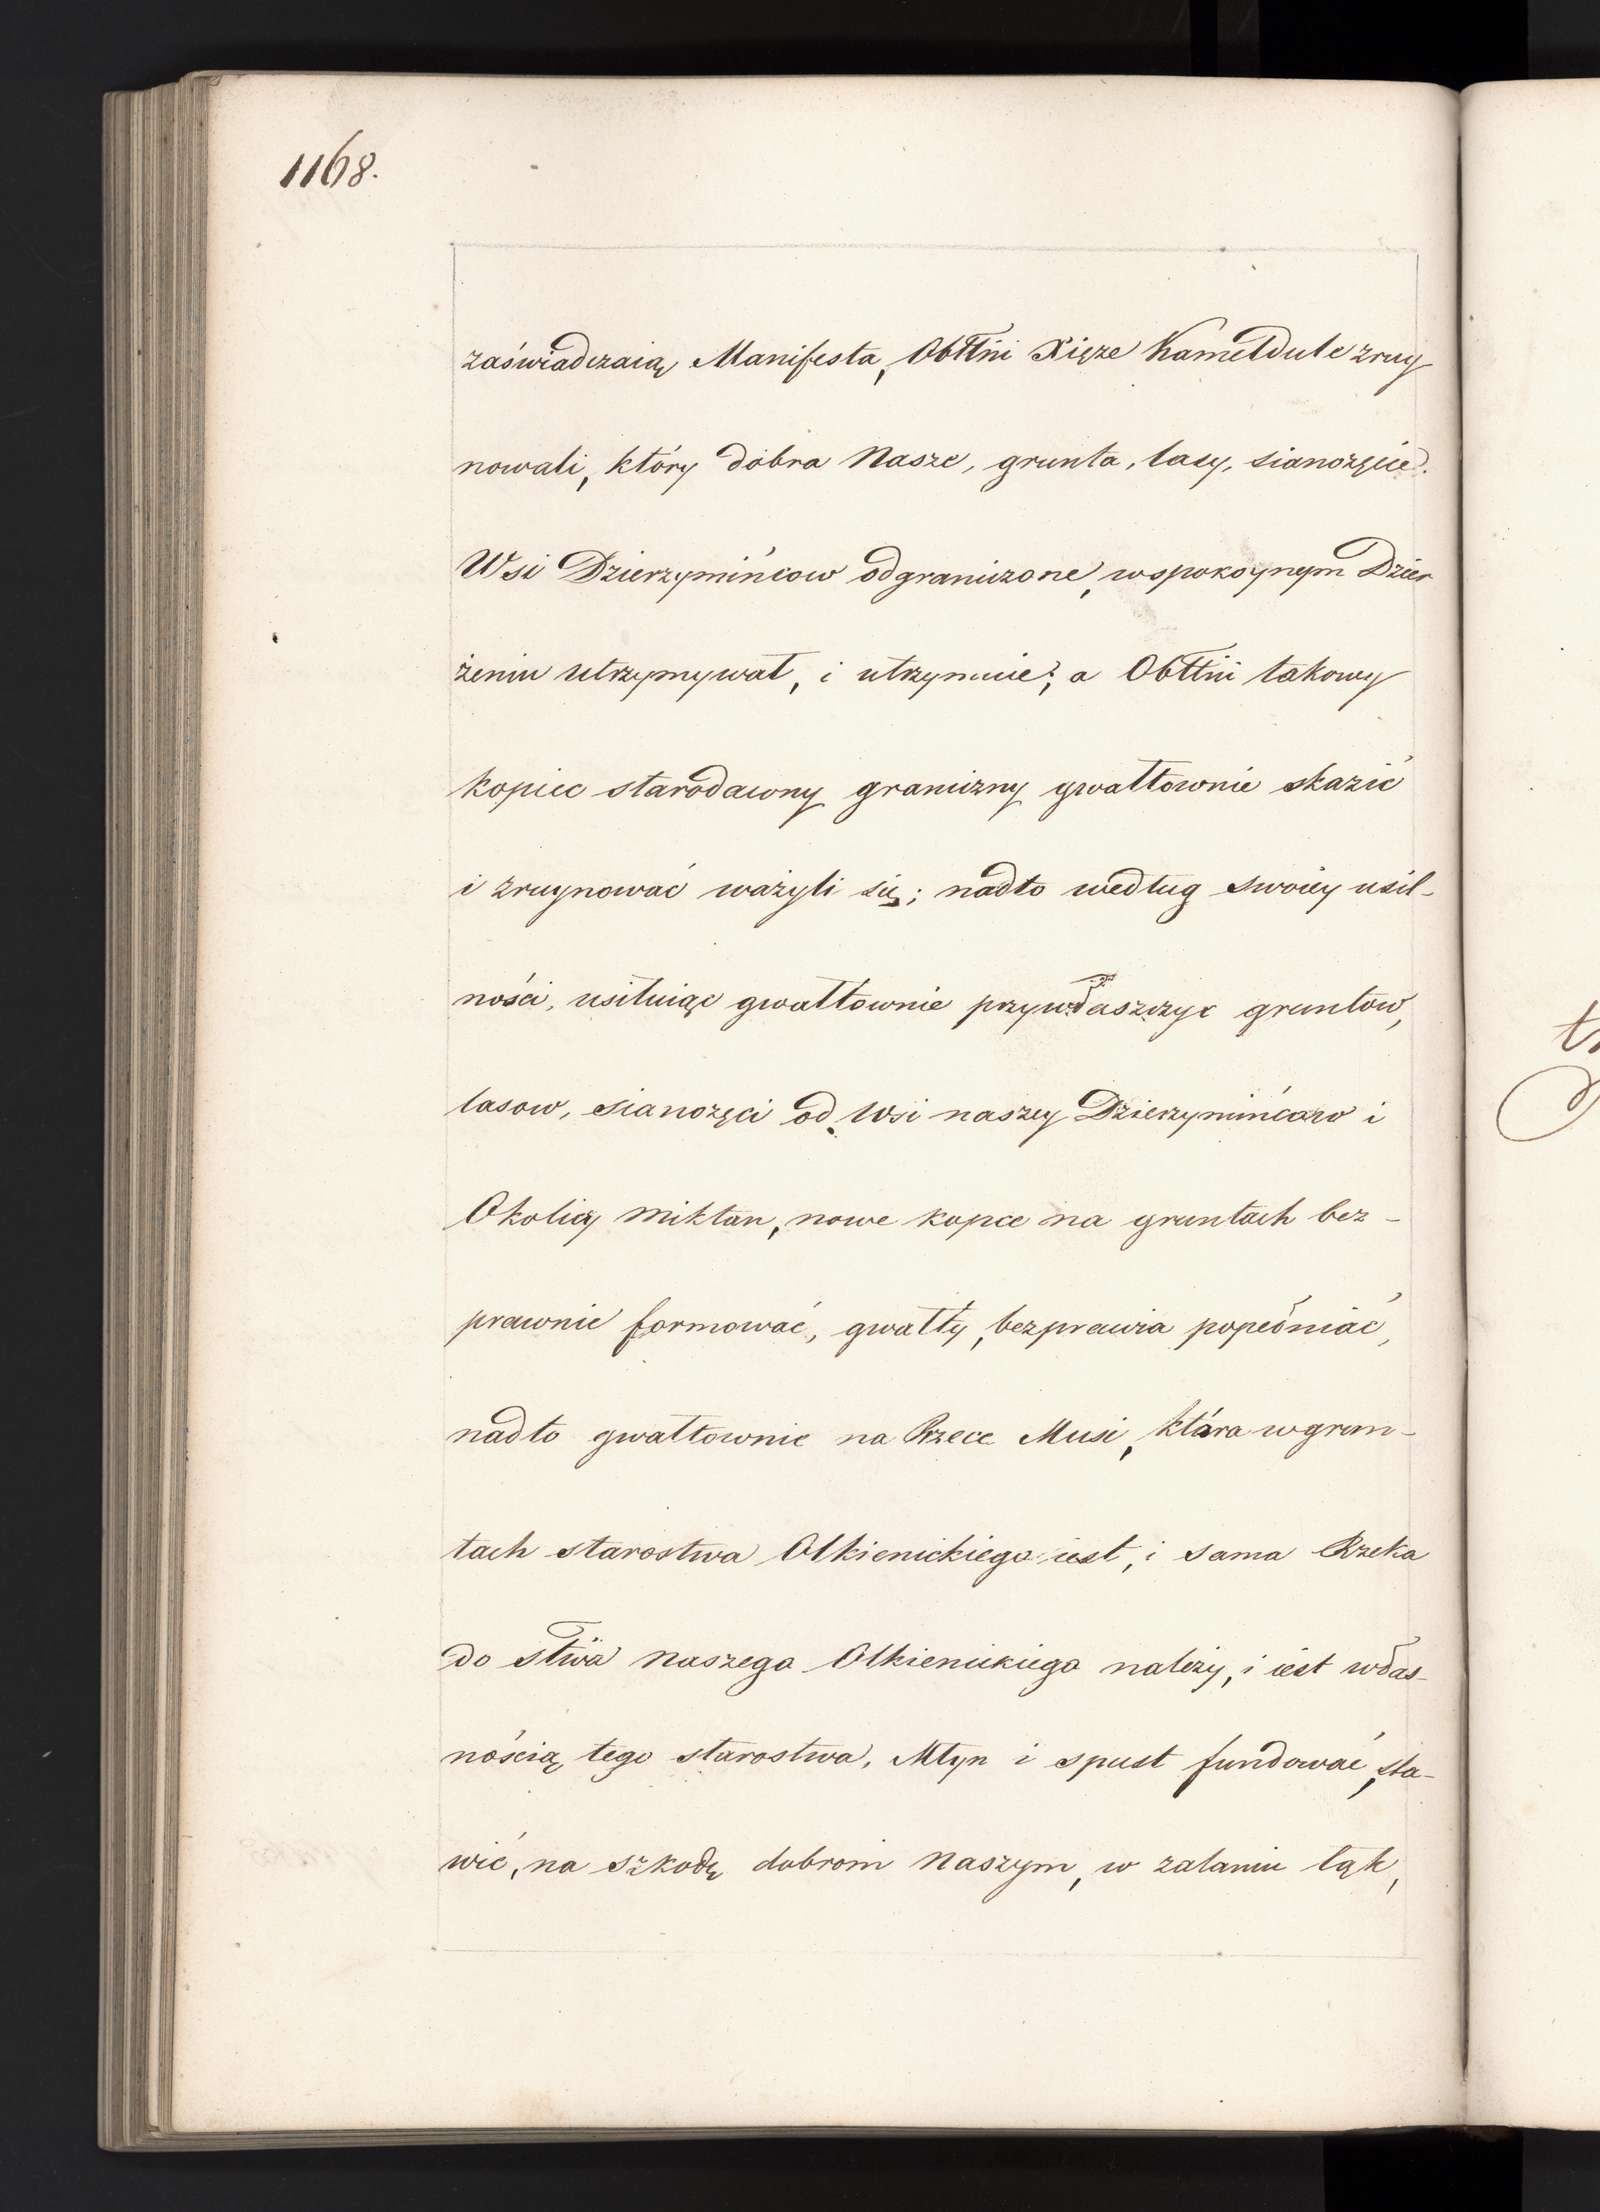 1168.
zaświadczaią Manifesta, Obttni Xięże Kameldule zruy
nowali, który dobra Nasze, grunta, lasy, sianożęcie.
Wsi Dzierzymińcow odgraniczone, wspokoynym Dzier
żeniu utrzymywał, i utrzymuie; a Obttni takowy
kopiec starodawny graniczny gwałtownie skazić
i zruynować ważyli się; nadto według swoiey usil-
ności, usiłuiąc gwałtownie przywłaszczyc gruntow,
lasow, sianożęci od Wsi naszey Dzierzymińcow i
Okolicy Miktan, nowe kopce na gruntach bez-
prawnie formować, gwałty, bezprawia popełniać,
nadto gwałtownie na Rzece Musi, która wgrun-
tach starostwa Olkienickiego iest, i sama Rzeka
do Stwa Naszego Olkienickiego należy, i iest włas-
nością tego starostwa, Młyn i spust fundować, sta-
wić, na szkodę dobrom Naszym, w zalaniu łąk,